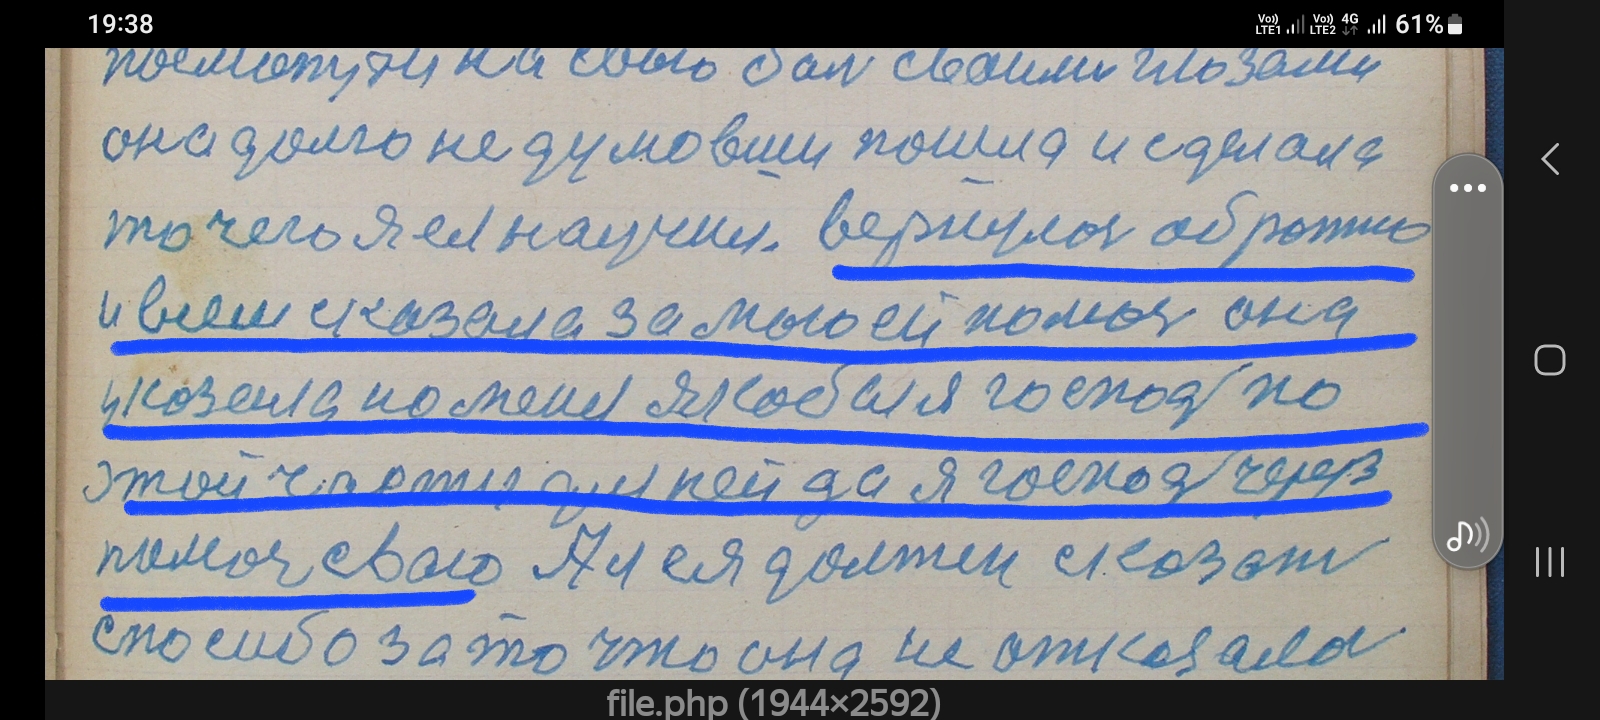 19:38
Vo)) LTE1 Vo)) LTE2 4G 61%
посмотрти на свою бал своими глозами
она долго не думовши пошла и сделала
то чего я ел научил. вернулас обротно
и всем сказала за мою ей помощ она
укозала но меня якобы я господ по
этой части для ней да я господ через
помощ свою А я должен сказат
спосибо за то что она не отказалас
file.php (1944×2592)